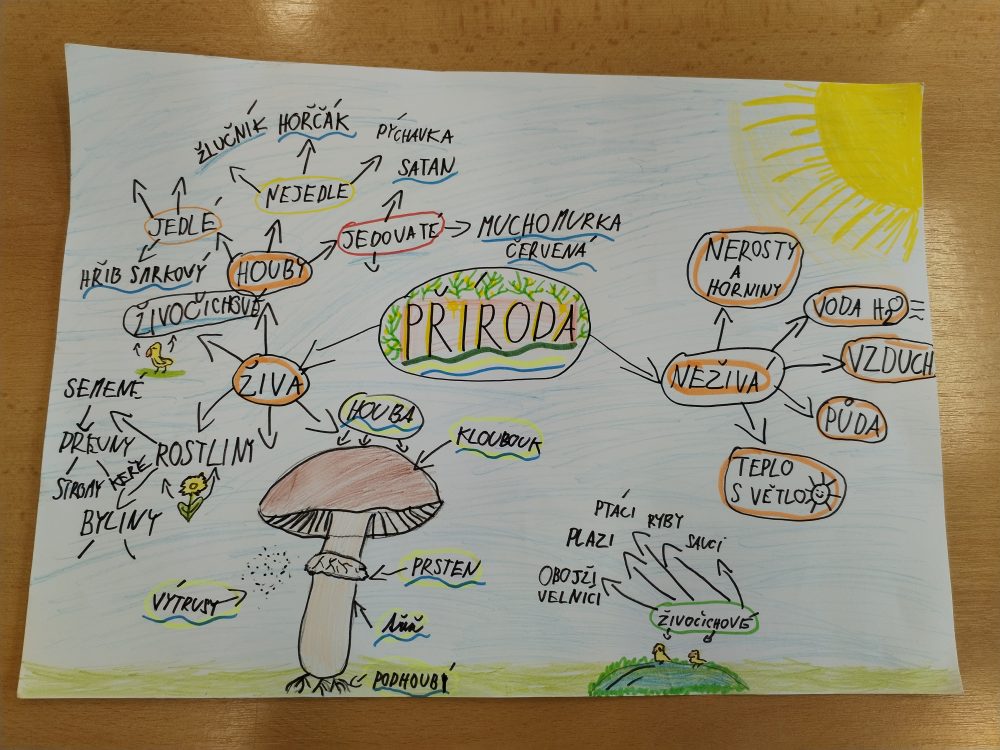 ŽLUČNÍK
HOŘČÁK
PÝCHAVKA
SATAN
NEJEDLÉ
JEDLÉ
JEDOVATÉ
MUCHOMURKA
ČERVENÁ
HŘIB SMRKOVÝ
HOUBY
ŽIVOČICHOVÉ
PŘÍRODA
NEROSTY
A
HORNINY
VODA H2O
VZDUCH
NEŽIVÁ
PŮDA
TEPLO
SVĚTLO
ŽIVÁ
SEMENÉ
DŘEVNY
STROMY
KEŘE
ROSTLINY
BYLINY
HOUBA
KLOBOUK
PRSTEN
VÝTRUSY
PODHOUBÍ
PTÁCI
RYBY
PLAZI
SAVCI
OBOJŽI
VELNÍCI
ŽIVOČICHOVÉ